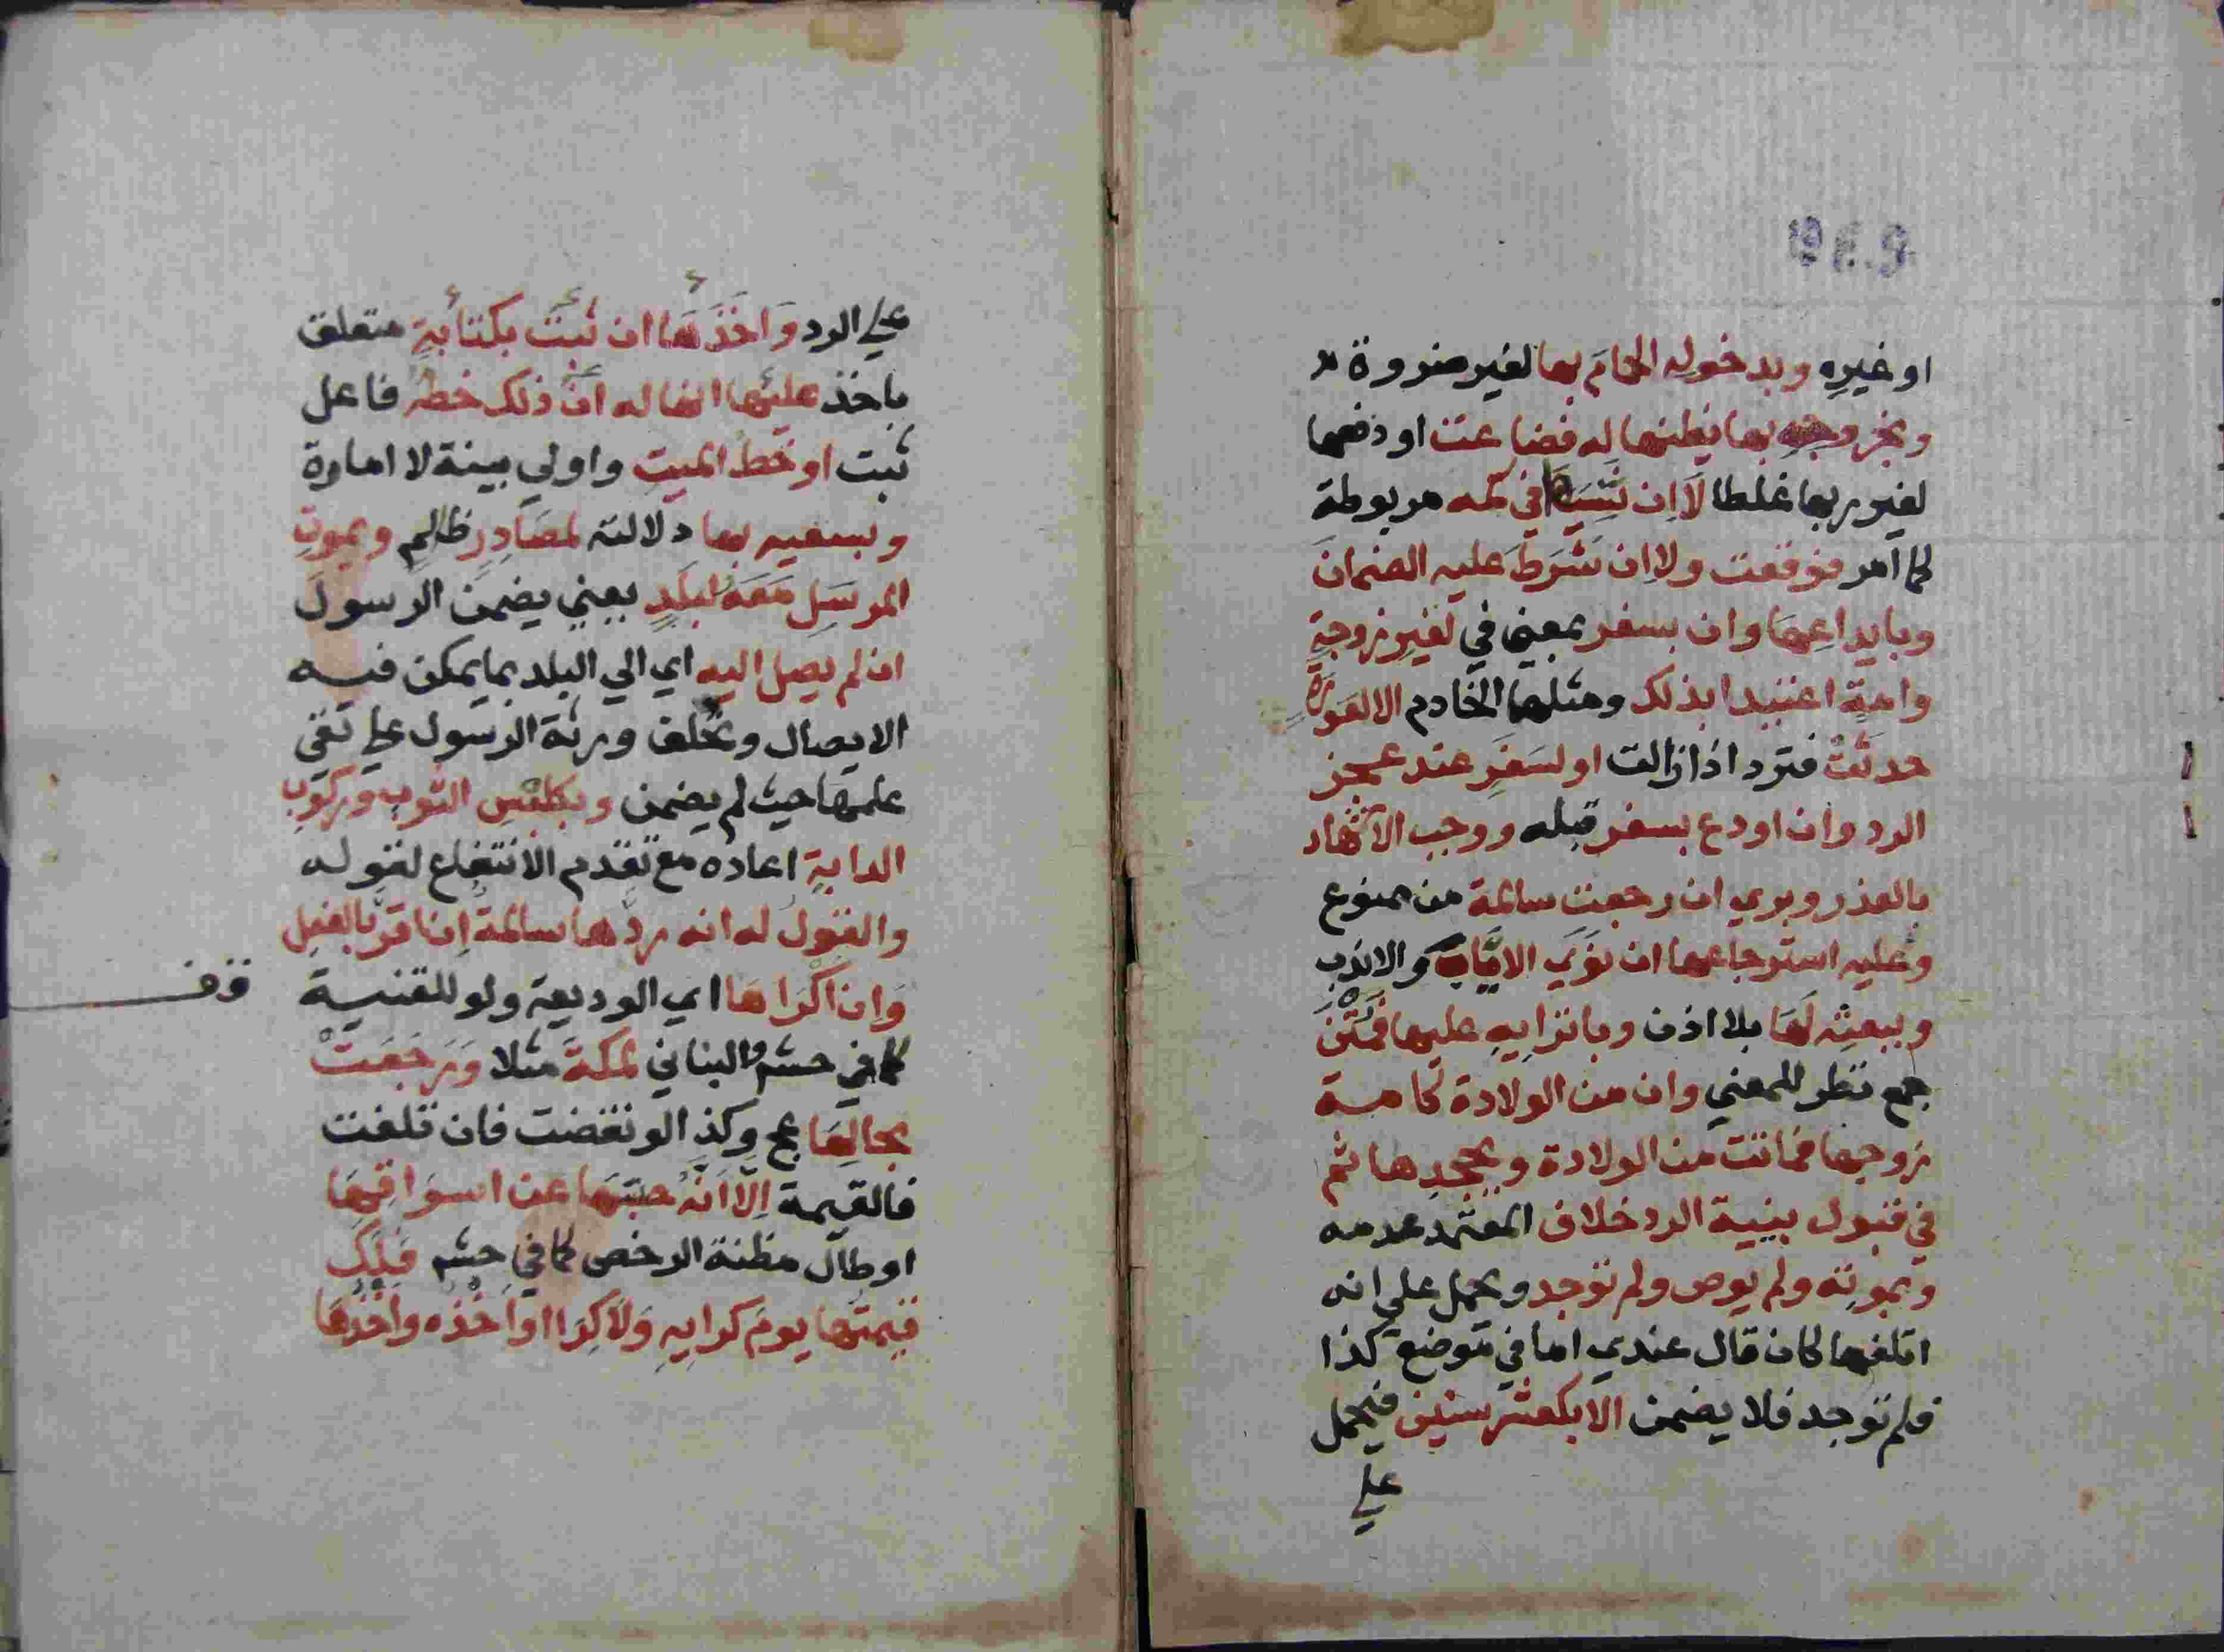 او غيره وبدخوله الحمام بها لغير ضرورة
وبخروجه بها يظنها له فضاعت او دفعها
لغير ربها غلطا لا ان نسيها في كمه مربوطة
كما امر فوقعت ولا ان شرط عليه الضمان
وبايداعها وان بسفر بمعني في لغير زوجة
وامة اعتيدا بذلك ومثلهما الخادم الا لعورة
حدثت فترد اذا زالت او لسفر عند عجز
الرد وان اودع بسفر قبله ووجب الاشهاد
بالعذر وبري ان رجعت سالمة من ممنوع
وعليه استرجاعها ان نوي الاياب والا ندب
وببعثه لها بلا اذن وبانزايه عليها فمتن
جمع نظر للمعني وان من الولادة كامة
زوجها فماتت من الولادة وبجحدها ثم
في قبول بينية الرد خلاف المعتمد عدمه
وبموته ولم يوص ولم توجد ويحمل علي انه
اتلفها كان قال عندي اما في موضع كذا
فلم توجد فلا يضمن الا بكعشر سنين فيحمل
علي
علي الرد واخذها ان ثبت بكتابة متعلق
باخذ عليها انها له ان ذلك خطه فاعل
ثبت او خط الميت واولي ببينة لا امارة
وبسعيه بها دلالته لمصادر ظالم وبموت
المرسل معه لبلد يعني يضمن الرسول
ان لم يصل اليه اي الي البلد بما يمكن فيه
الايصال ويحلف ورثة الرسول علي نفي
علمها حيث لم يضمن وبكلبس الثوب وركوب
الدابة اعاده مع تقدم الانتفاع لقوله
والقول له انه ردها سالمة ان اقر بالفعل
وان اكراها اي الوديعة ولو للقنية
كما في حش والبناني لمكة مثلا ورجعت
بحالها عج وكذا لو نقضت فان تلفت
فالقيمة الا انه حبسها عن اسواقها
او طال مظنة الرخص كما في حش فلك
قيمتها يوم كرايه ولا كرا او اخذه واخذها